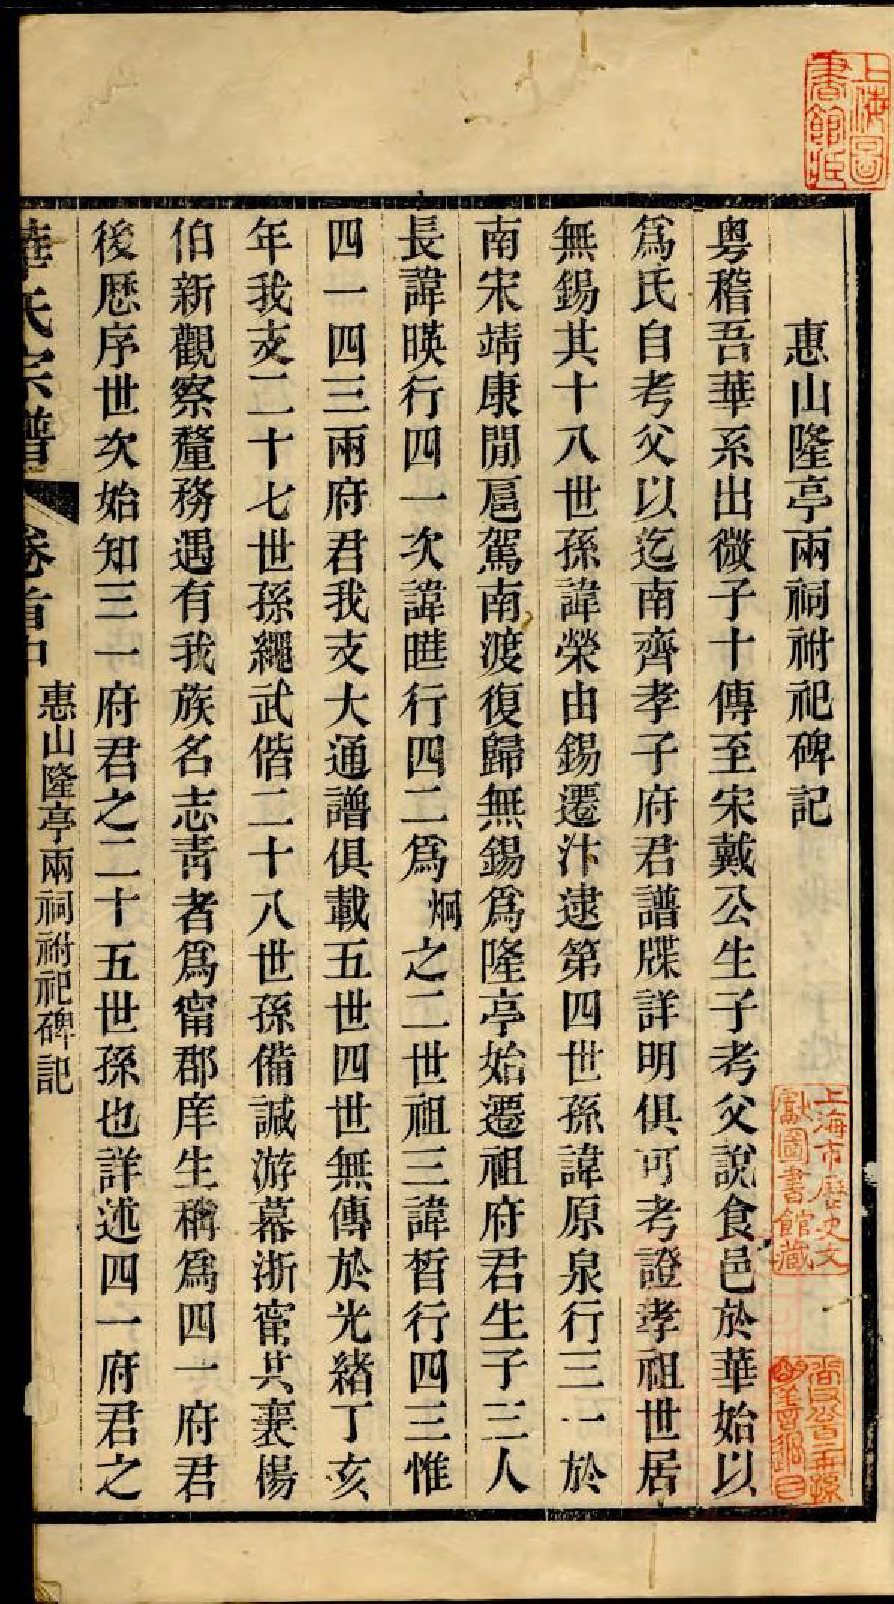 惠山隆亭兩祠祔祀碑記
粵稽吾華系出微子十傳至宋戴公生子考父說食邑於華始以
爲氏自考父以迄南齊孝子府君譜牒詳明俱可考證孝祖世居
無錫其十八世孫諱榮由錫遷汴逮第四世孫諱原泉行三一於
南宋靖康閒扈駕南渡復歸無錫爲隆亭始遷祖府君生子三人
長諱暎行四一次諱㫼行四二爲炯之二世祖三諱晳行四三惟
四一四三兩府君我支大通譜俱載五世四世無傳於光緒丁亥
年我支二十七世孫繩武偕二十八世孫備諴游幕浙甯共襄楊
伯新觀察釐務遇有我族名志青者爲甯郡庠生稱爲四一府君
後歷序世次始知三一府君之二十五世孫也詳述四一府君之
華氏宗譜 卷首中 惠山隆亭兩祠祔祀碑記
上海圖書館藏
上海市歷史文獻圖書館藏